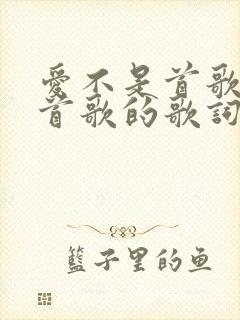 愛不是首歌
首歌的歌詞
籃子里的鱼